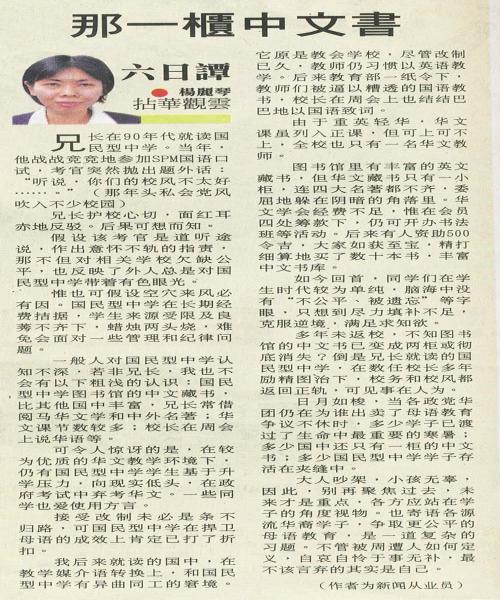 那一櫃中文書
六日譚
楊麗琴
拈華觀雲
兄长在90年代就读国
民型中学。当年，
他战战竞竞地参加SPM国语口
试，考官突然抛出题外话：
“听说，你们的校风不太好
……。”（那年头私会党风
吹入不少校园）
兄长护校心切，面红耳
赤地反驳。后果可想而知。
假设该考官是道听途
说，作出意怀不轨的指责，
那不但对相关学校欠缺公
平，也反映了外人总是对国
民型中学带着有色眼光。
惟也可假设空穴来风必
有因。国民型中学在长期经
费拮据，学生来源受限及良
莠不齐下，蜡烛两头烧，难
免会面对一些管理和纪律问
题。
一般人对国民型中学认
知不深，若非兄长，我也不
会有以下粗浅的认识：国民
型中学图书馆的中文藏书，
比其他国中丰富，兄长常借
阅马华文学和中外名著；华
文课节数较多；校长在周会
上说华语等。
可令人惊讶的是，在较
为优质的华文教学环境下，
仍有国民型中学学生基于升
学压力，向现实低头，在政
府考试中弃考华文。一些同
学也爱使用方言。
接受改制未必是条不
归路，可国民型中学在捍卫
母语的成效上肯定已打了折
扣。
我后来就读的国中，在
教学媒介语转换上，和国民
型中学有异曲同工的窘境。
它原是教会学校，尽管改制
已久，教师仍习惯以英语教
学。后来教育部一纸令下，
教师们被逼以糟透的国语教
书，校长在周会上也结结巴
巴地以国语致词。
由于重英轻华，华文
课虽列入正课，但可上可不
上，全校也只有一名华文教
师。
图书馆里有丰富的英文
藏书，但华文藏书只有一小
柜，连四大名著都不齐，委
屈地躲在阴暗的角落里。华
文学会经费不足，惟在会员
四处筹款下，仍可开办书法
班等活动。后来有人资助500
令吉，大家如获至宝，精打
细算地买了数十本书，丰富
中文书库。
如今回首，同学们在学
生时代较为单纯，脑海中没
有“不公平、被遗忘”等字
眼，只想到尽力填补不足，
克服逆境，满足求知欲。
多年未返校，不知图书
馆的中文书已变成两柜或彻
底消失？倒是兄长就读的国
民型中学，在数任校长多年
励精图治下，校务和校风都
返回正轨，可见事在人为。
日月如梭，当各政党华
团仍在为谁出卖了母语教育
争议不休时，多少学子已渡
过了生命中最重要的寒暑；
多少国中还只有一柜的中文
书；多少国民型中学学子存
活在夹缝中。
大人吵架，小孩无辜，
因此，别再聚焦过去，未
来才是重点，各方应站在学
子的角度视物。也寄语各源
流华裔学子，争取更公平的
母语教育，是一道复杂的
习题。不管被周遭人如何定
义，自哀自怜于事无补，最
不该言弃的其实是自己。
（作者为新闻从业员）